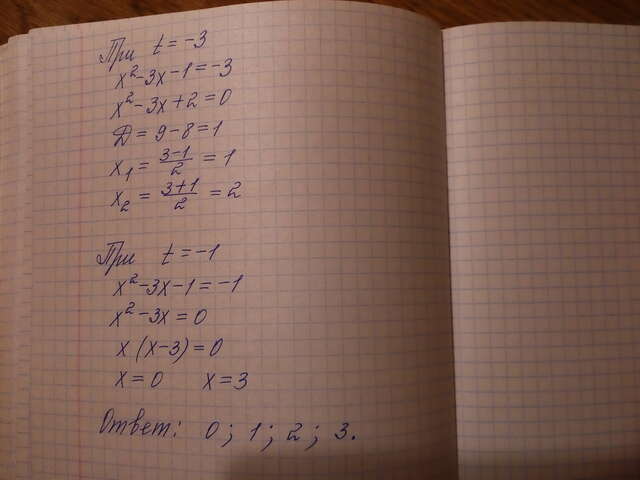 При t = -3
x² - 3x - 1 = -3
x² - 3x + 2 = 0
Д = 9 - 8 = 1
x₁ = (3-1)/2 = 1
x₂ = (3+1)/2 = 2
При t = -1
x² - 3x - 1 = -1
x² - 3x = 0
x (x - 3) = 0
x = 0 x = 3
Ответ: 0; 1; 2; 3.